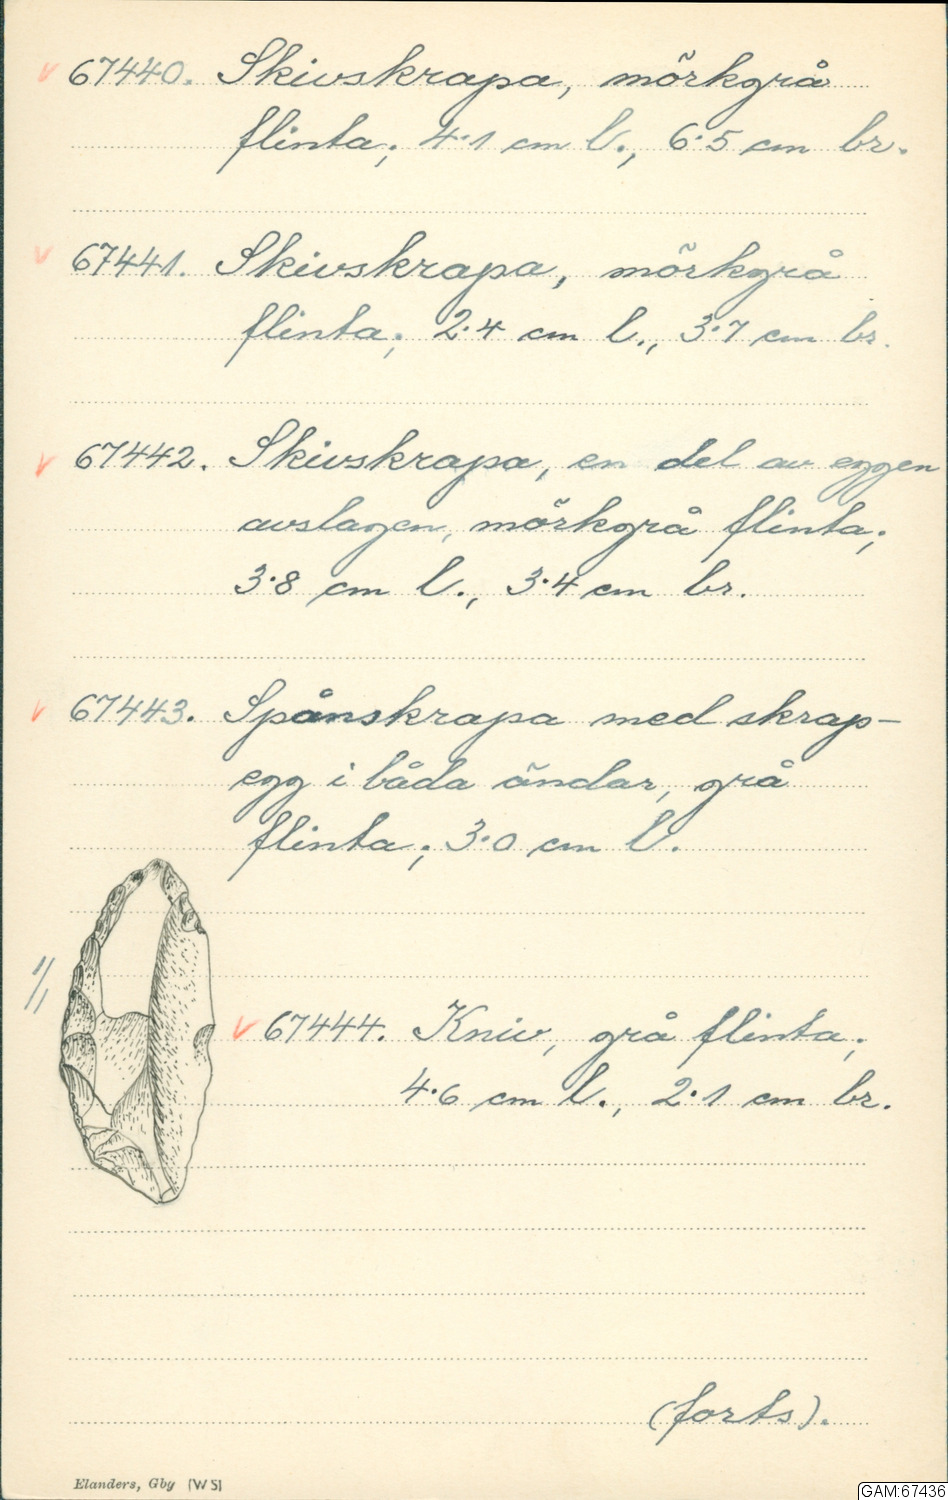 67440. Skivskrapa, mörkgrå
flinta; 4·1 cm l., 6·5 cm br.
67441. Skivskrapa, mörkgrå
flinta; 2·4 cm l., 3·7 cm br.
67442. Skivskrapa, en del av eggen
avslagen, mörkgrå flinta;
3·8 cm l., 3·4 cm br.
67443. Spånskrapa med skrap-
egg i båda ändar, grå
flinta; 3·0 cm l.
1/1
67444. Kniv, grå flinta;
4·6 cm l., 2·1 cm br.
(forts).
Elanders, Gby (WS)
GAM:67436